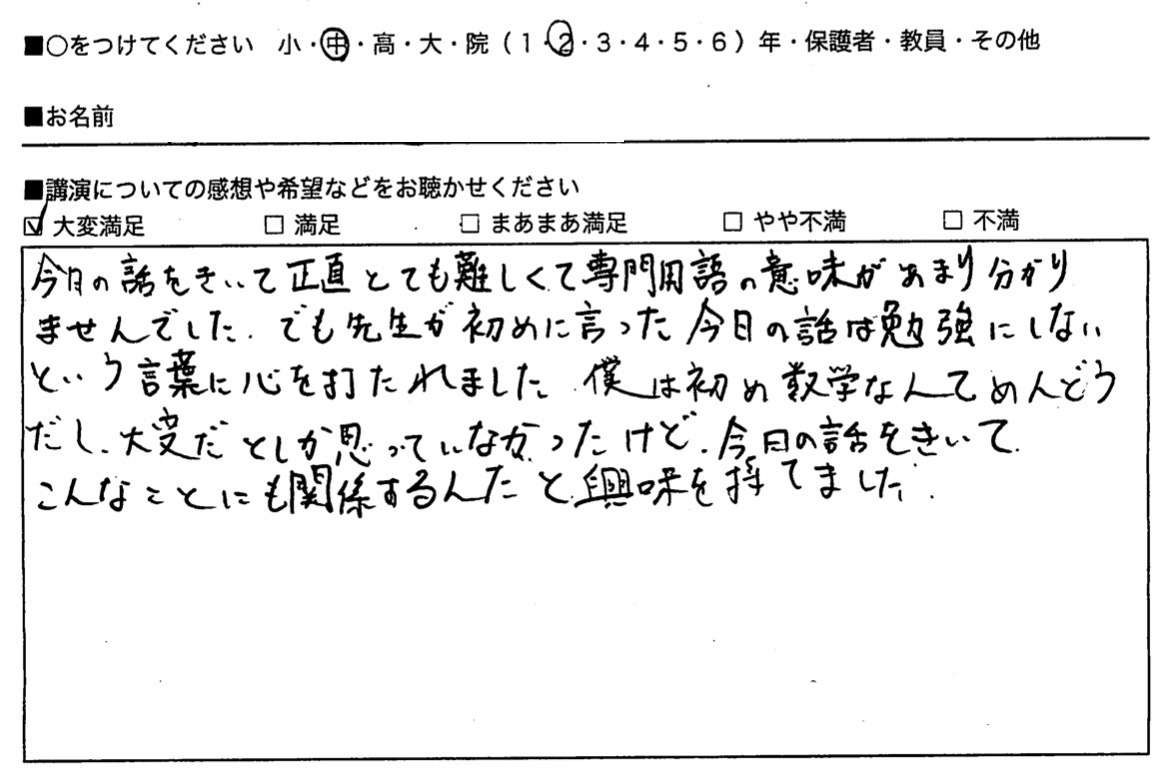 ■○をつけてください 小・中・高・大・院（1・2・3・4・5・6）年・保護者・教員・その他
■お名前
■講演についての感想や希望などをお聴かせください
☑ 大変満足 □ 満足 □ まあまあ満足 □ やや不満 □ 不満
今日の話をきいて正直とても難しくて専門用語の意味があまり分かり
ませんでした。でも先生が初めに言った今日の話は勉強にしない
という言葉に心を打たれました。僕は初め数学なんてめんどう
だし、大変だとしか思っていなかったけど、今日の話をきいて、
こんなことにも関係するんだと興味を持てました。